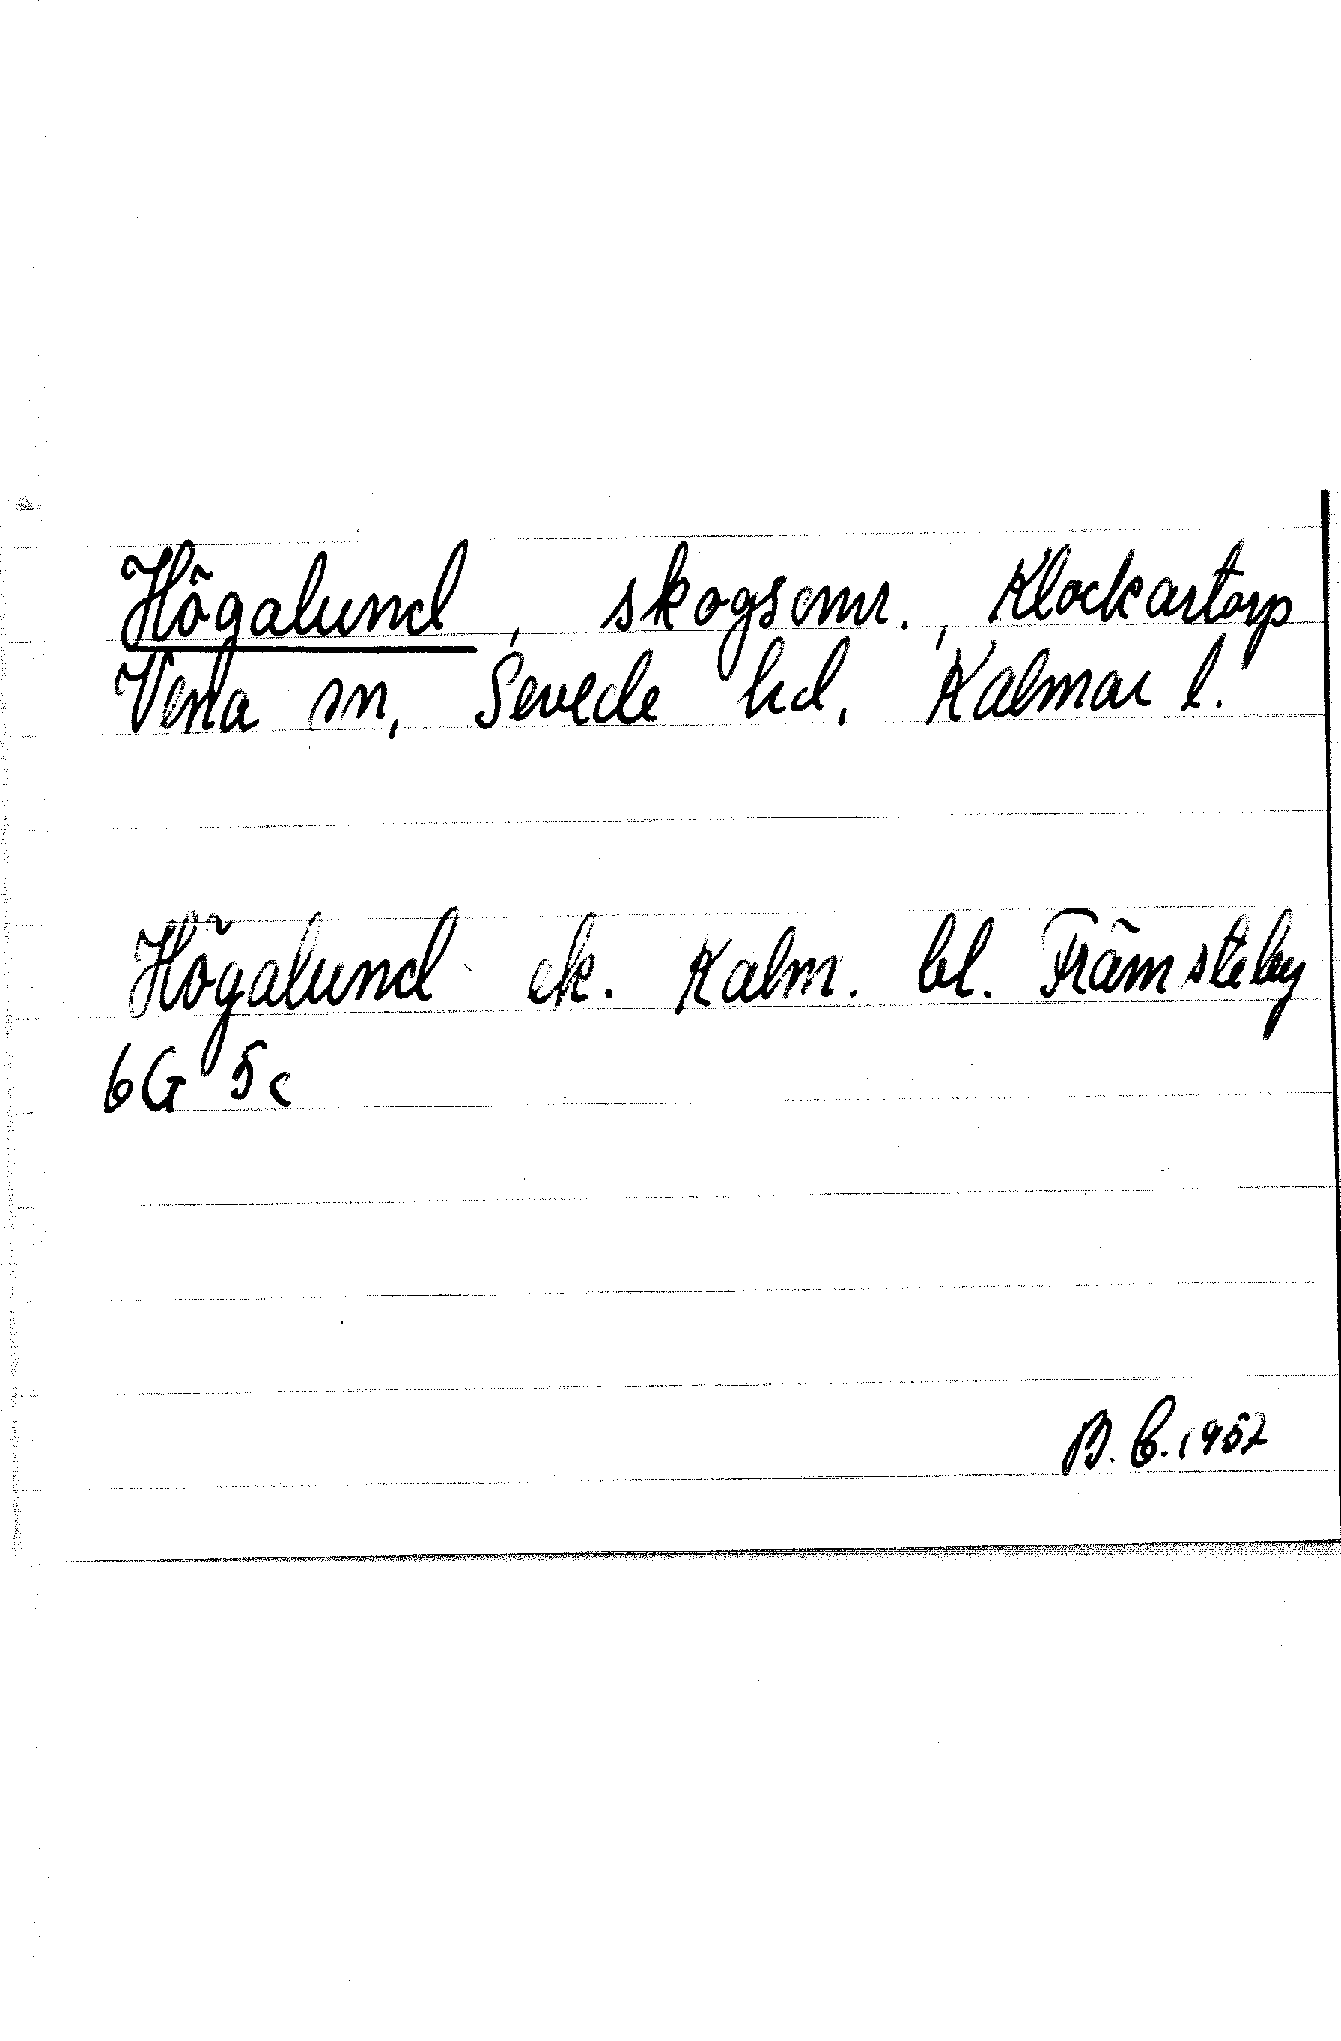 Högalund, skogsomr., Klockartorp
Vena sn, Sevede hd, Kalmar l.
Högalund ek. Kalm. bl. Främsteby
6G 5c
B.C.1952